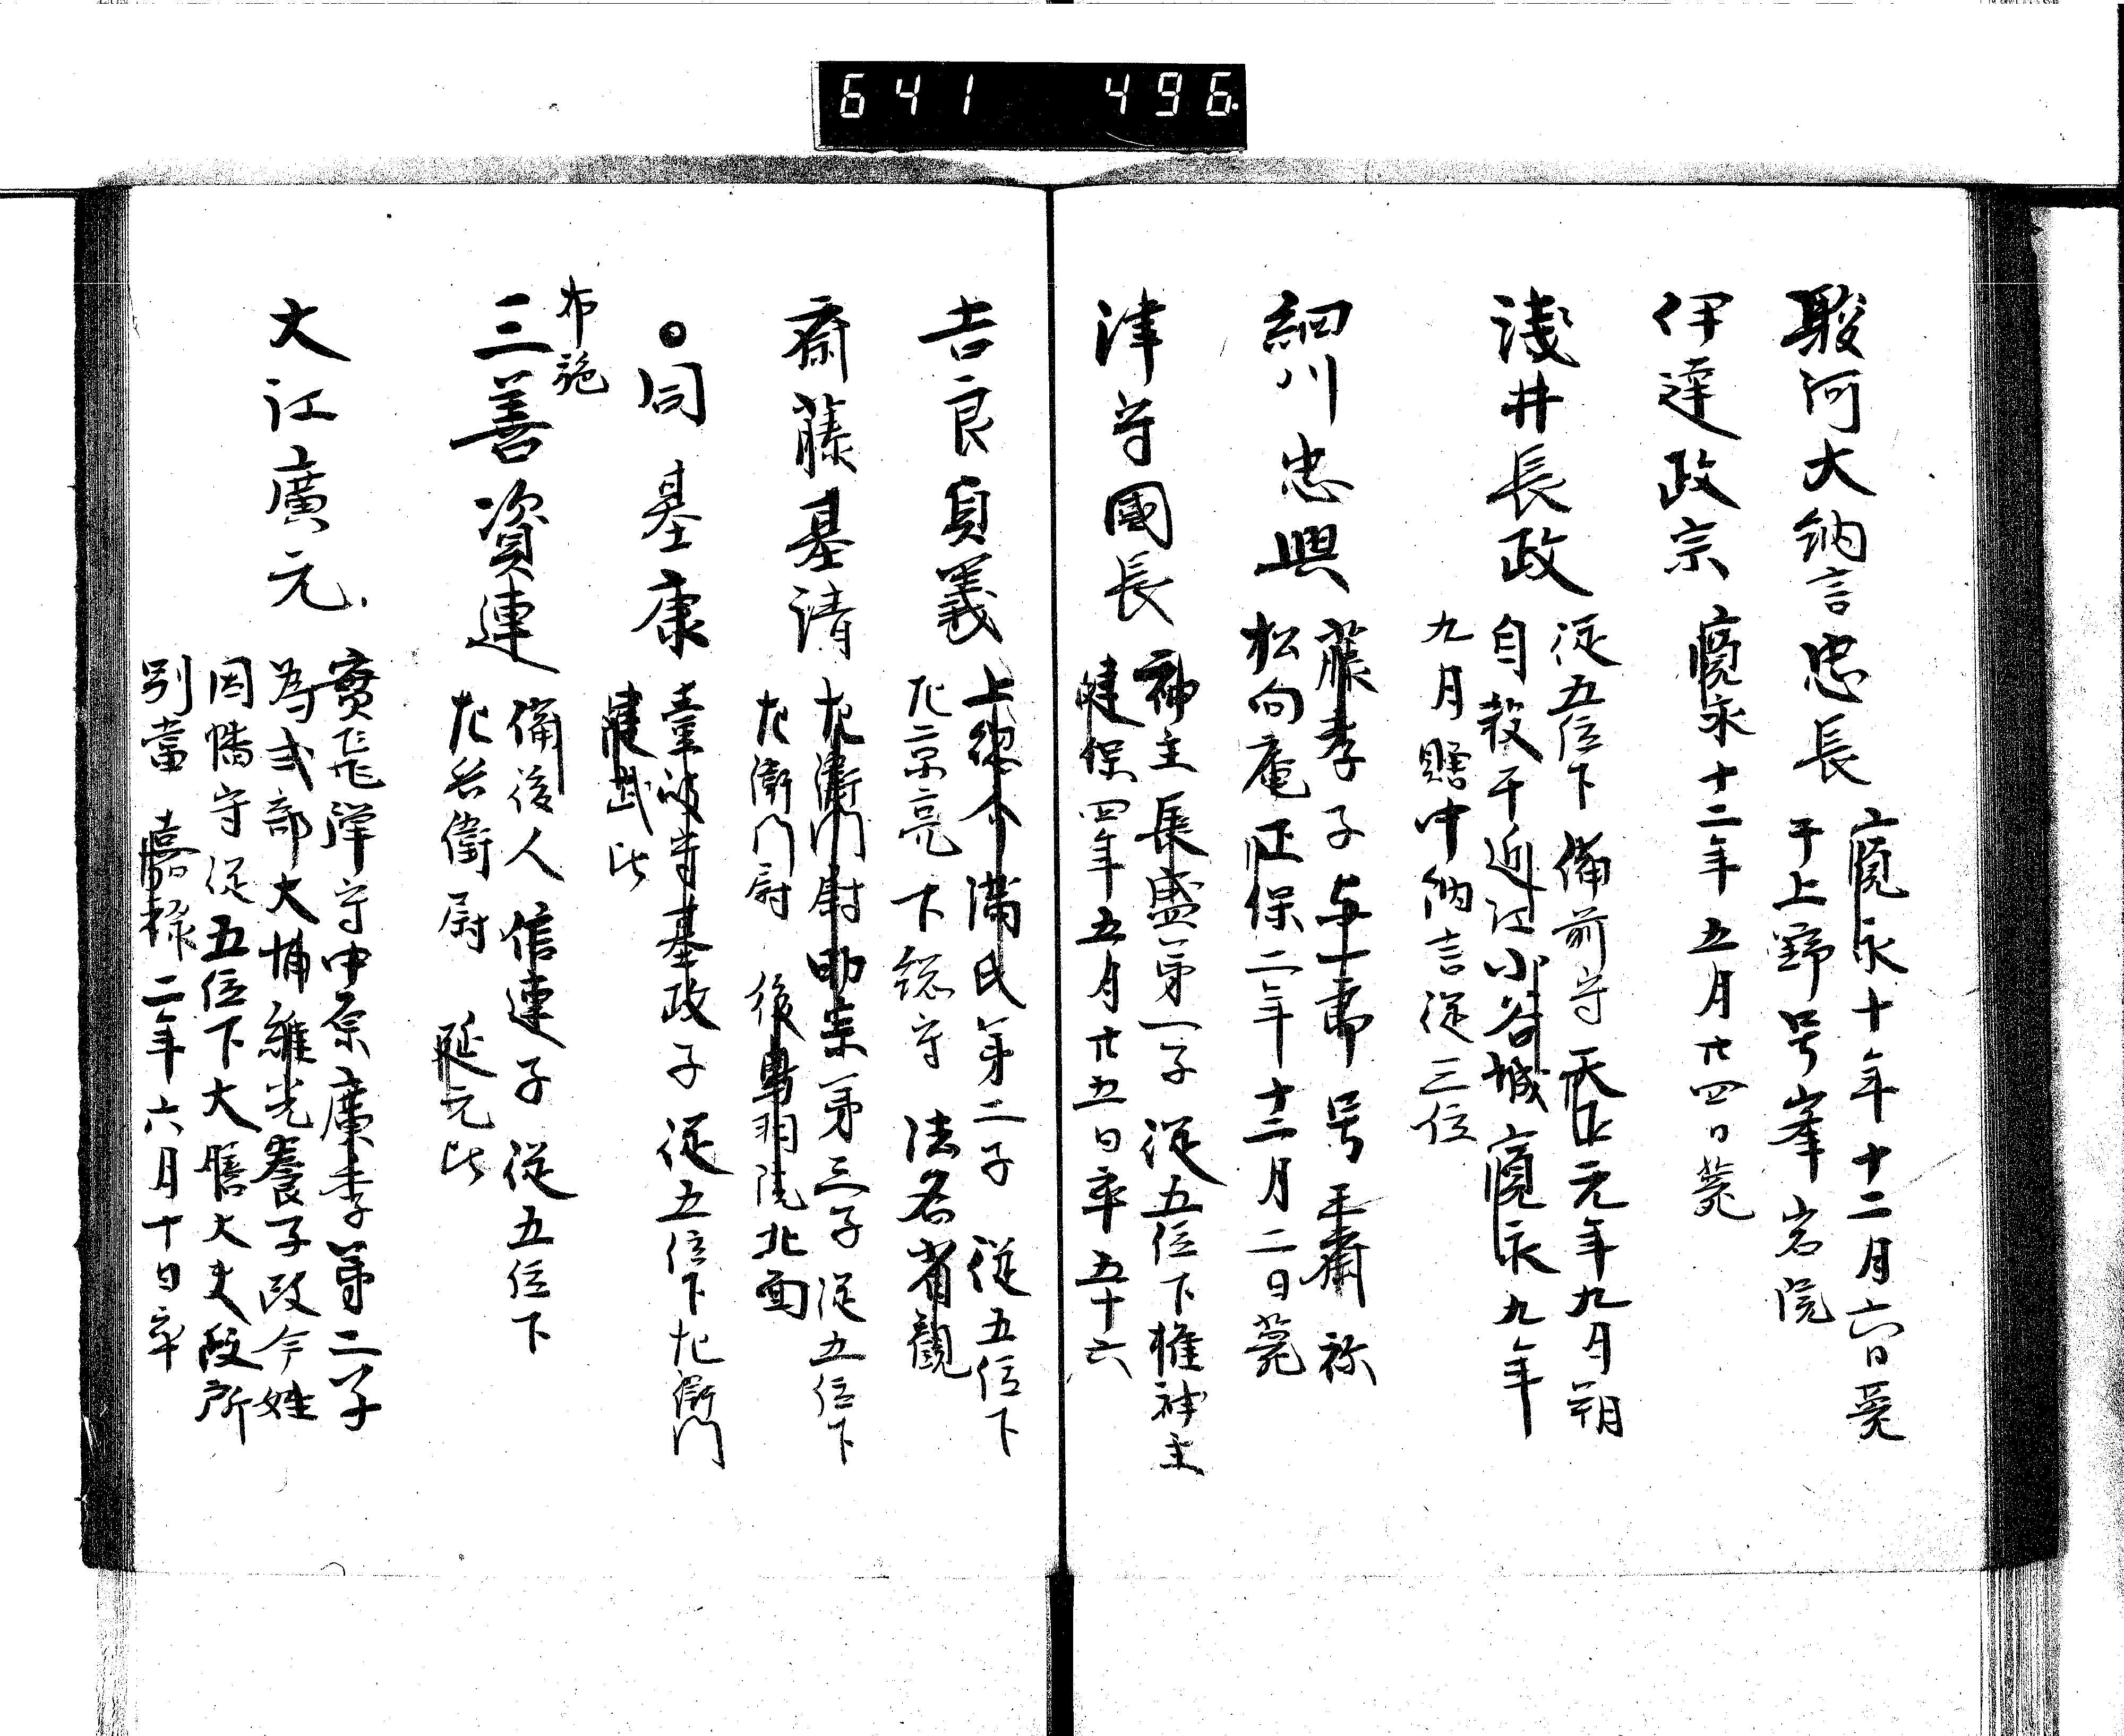 641 496
駿河大納言忠長
寛永十年十二月六日薨
于上野号峯岩院
伊達政宗
寛永十二年五月廿四日薨
淺井長政
從五位下備前守天正元年九月朔
自殺于近江小谷城寛永九年
九月贈中納言從三位
細川忠興
藤孝子与一郎号三齋祢
松向庵正保二年十二月二日薨
津守國長
神主長盛第一子從五位下権神主
建保四年五月廿五日卒五十六
吉良貞義
上総介満氏第二子從五位下
左京亮下総守法名省觀
斎藤基清
左衛門尉助宗第三子從五位下
左衛門尉後鳥羽院北面
同基康
基政子從五位下左衛門
建武比
布施
三善資連
備後人信連子從五位下
左兵衛尉延元比
大江廣元
實飛弾守中原廣季第二子
為式部大輔維光養子改今姓
因幡守從五位下大膳大夫政所
別當嘉禄二年六月十日卒